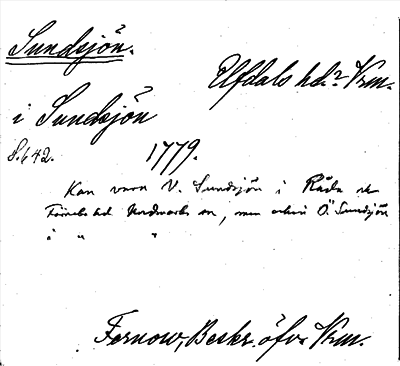 Sundsjön.
Elfdals hd? Vrm.
i Sundsjön
S. 642.
1779.
Kan vara V. Sundsjön i Råda sn
Nordmarks sn, men också Ö. Sundsjön
i " "
Fernow, Beskr. öfvr Vrm.